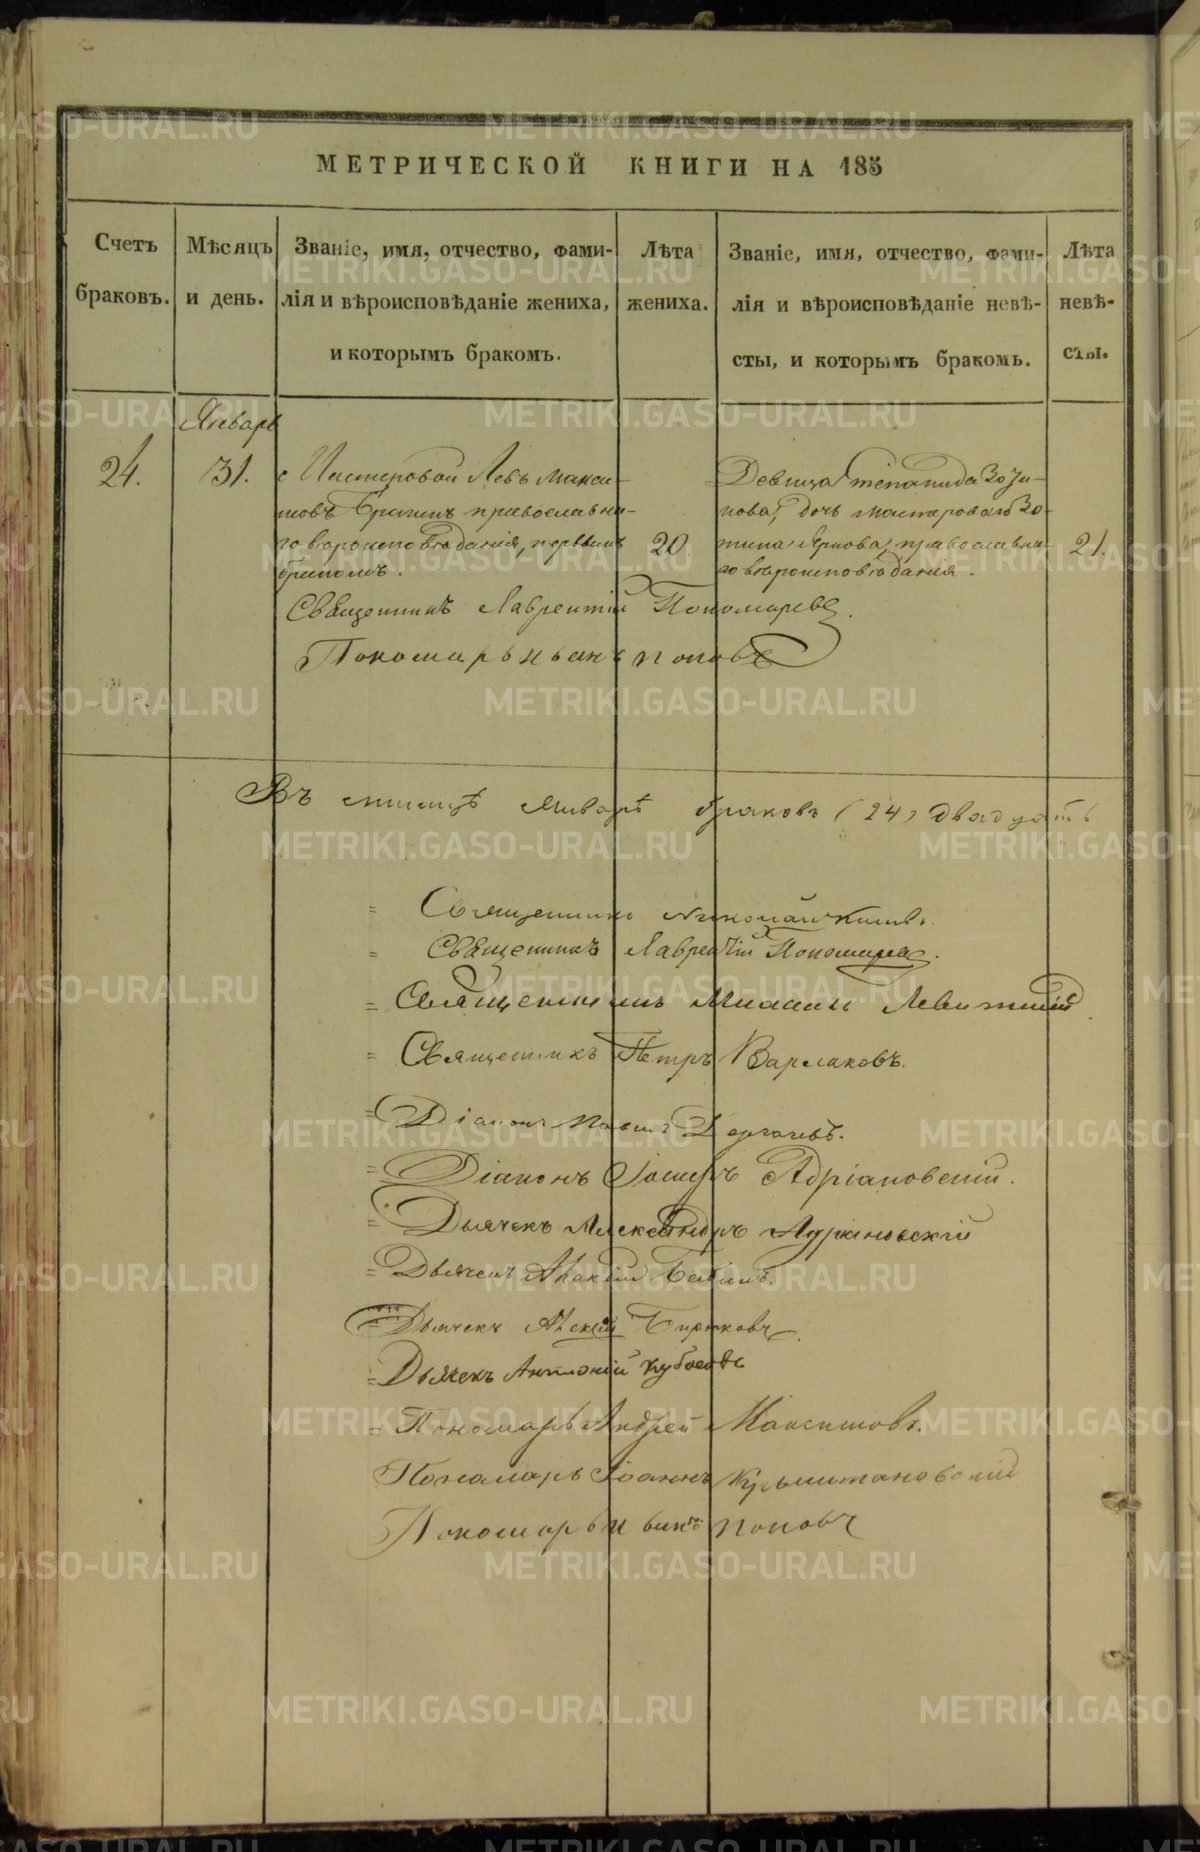 МЕТРИЧЕСКОЙ КНИГИ НА 185
Счетъ браковъ.
Мѣсяцъ и день.
Званіе, имя, отчество, фами-
лія и вѣроисповѣданіе жениха,
и которымъ бракомъ.
Лѣта жениха.
Званіе, имя, отчество, фами-
лія и вѣроисповѣданіе невѣ-
сты, и которымъ бракомъ.
Лѣта невѣ-
сты.
Январь
24.
31.
Мастеровой Левъ Макси-
мовъ православна-
го вѣроисповѣданія, первымъ
бракомъ.
20.
Девица Степанида Зоти-
кова, дочь мастероваго Зо-
тика православна-
го вѣроисповѣданія.
21.
Священникъ Лаврентій Пономаревъ.
Пономарь Иванъ Поповъ
Въ месяцѣ Январѣ браковъ (24) двадцать
Священникъ Николай
Священникъ Лаврентій Пономаревъ.
Священникъ Михаилъ Левитскій
Священникъ Петръ Варлаковъ.
Діаконъ Павелъ
Діаконъ Іосифъ Адріановскій.
Дьячекъ Александръ Адріановскій
Дьячекъ
Дьячекъ Бирюковъ
Дьячекъ Антоній Кубасовъ
Пономарь Андрей Максимовъ.
Пономарь Іоаннъ
Пономарь Иванъ Поповъ
METRIKI.GASO-URAL.RU